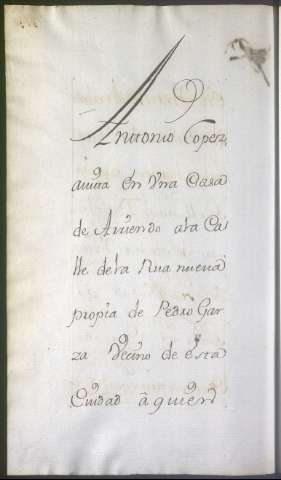 Antonio Lopez,
avita en Vna Casa
de Arriendo a la Ca
lle de la Rua nueva
propia de Pedro Gar
za Vecino de esta
Ciudad â quien